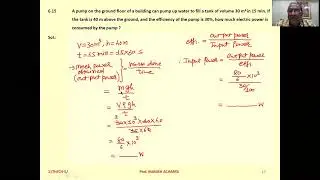 6.15 A pump on the ground floor of a building can pump up water to fill a tank of volume 30 m³ in 15 min. If
the tank is 40 m above the ground, and the efficiency of the pump is 30%, how much electric power is
consumed by the pump ?
Sol:
V=30m³, h=40m
t=15min = 15x60 s
Mech power
(output power) = work done / time
= mgh / t
= Vρgh / t
= 30x10³x10x40 / 15x60
= 80/6 x10³
= ___ W
effi. = output power / Input power
Input power = output power / effi.
= 80/6 x10³ / 30/100
= ___ W
17